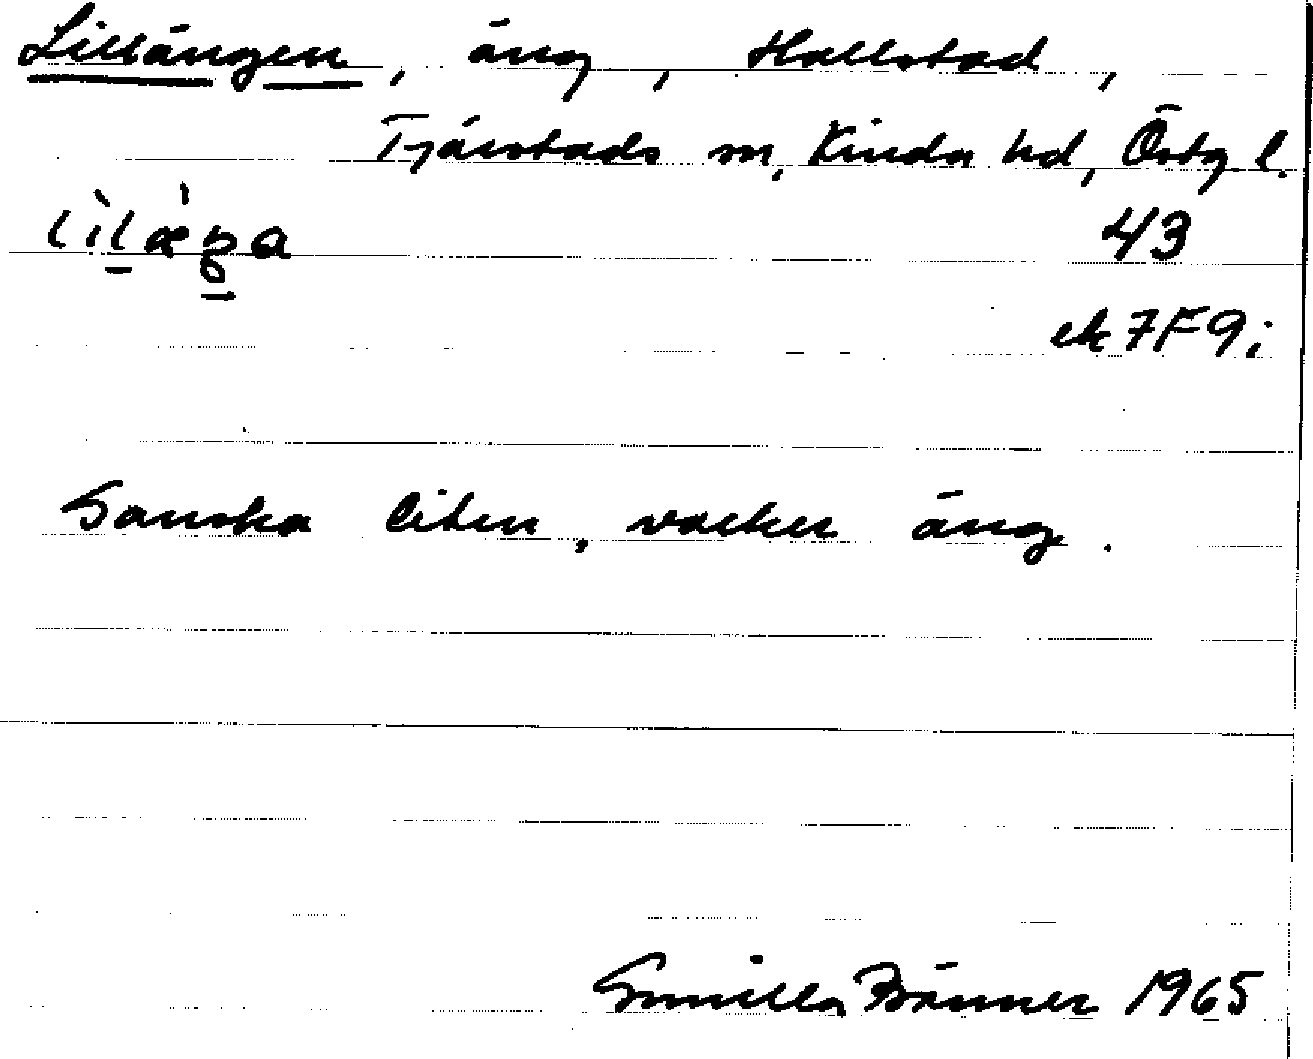 Lillängen, äng, Hallstad,
Tjärstads sn, Kinda hd, Östg l.
43
ek 7F9i
Ganska liten, vacker äng.
Gunilla Bränner 1965